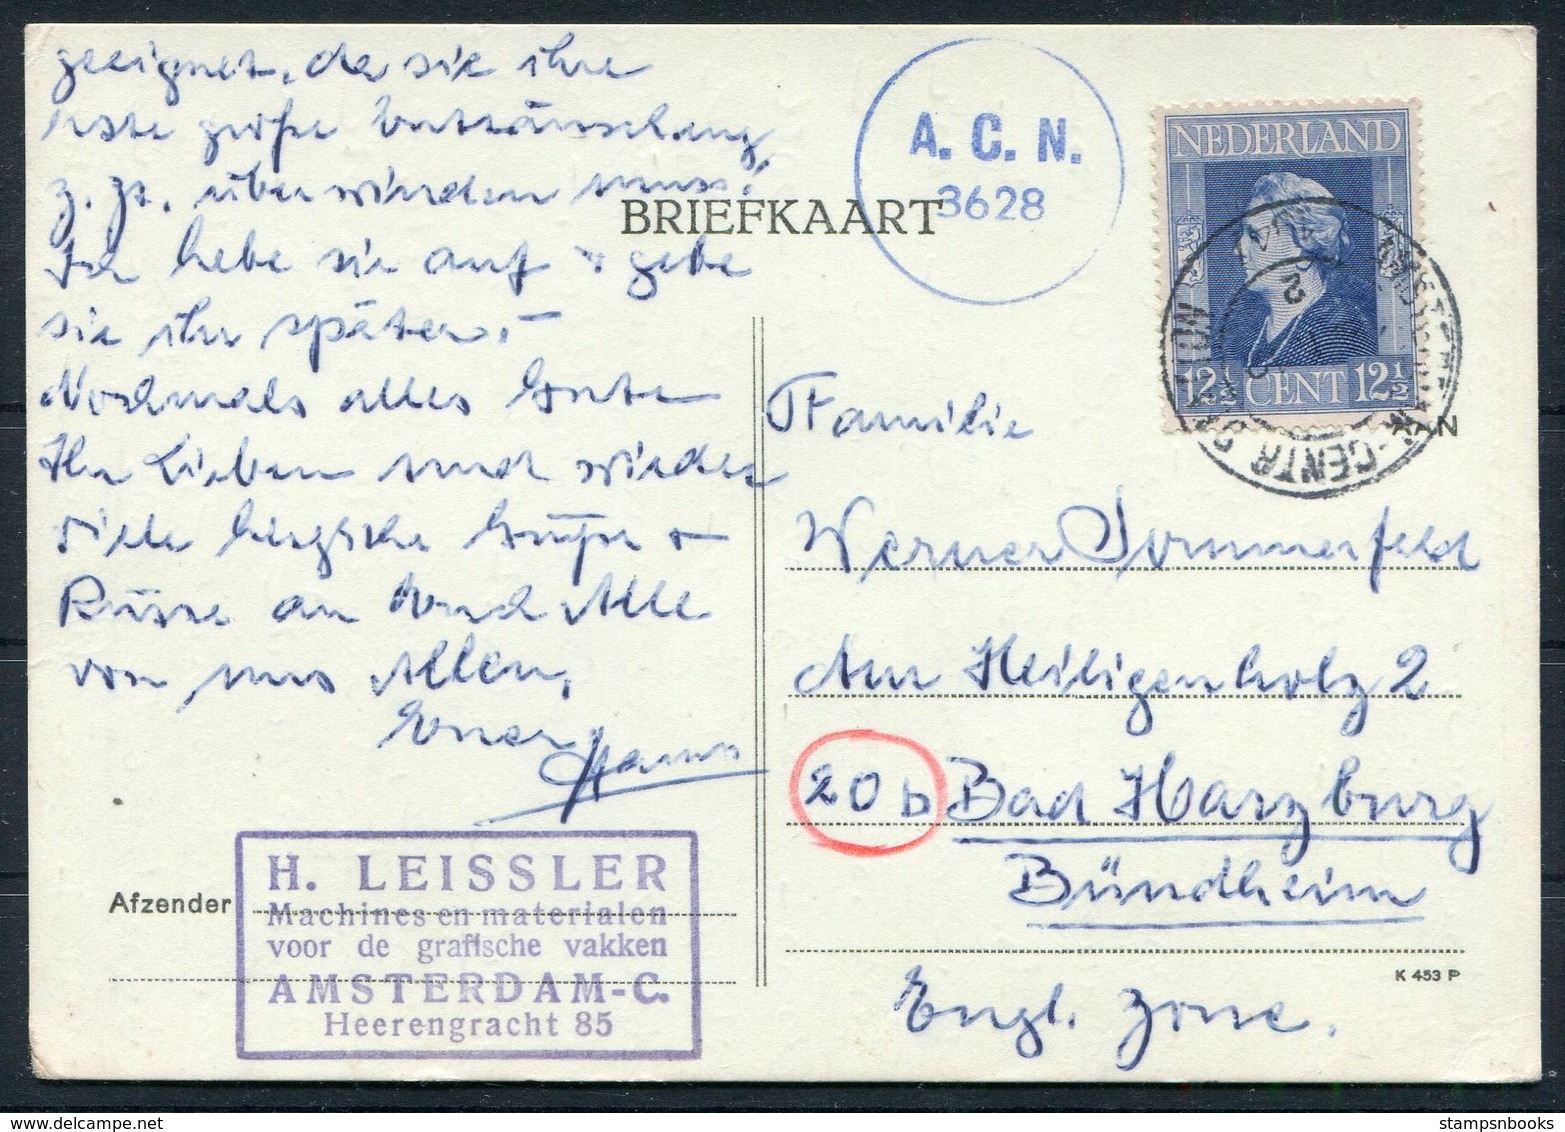 geeignet, da sie ihre
erste große Enttäuschung,
z. Zt. überwinden muss.
Ich hebe sie auf + gebe
sie ihr später. –
Nochmals alles Gute
Ihr Lieben und wieder
viele herzliche Grüße +
Küsse an Euch Alle
von uns Allen,
Euer
Hans
BRIEFKAART
A. C. N.
3628
NEDERLAND
12½ CENT 12½
AMSTERDAM-CENTR
AAN
Familie
Werner Sommerfeld
Am Heiligenholz 2
20b Bad Harzburg
Bündheim
Engl. Zone.
K 453 P
Afzender
H. LEISSLER
Machines en materialen
voor de grafische vakken
AMSTERDAM-C.
Heerengracht 85
stampsnbooks